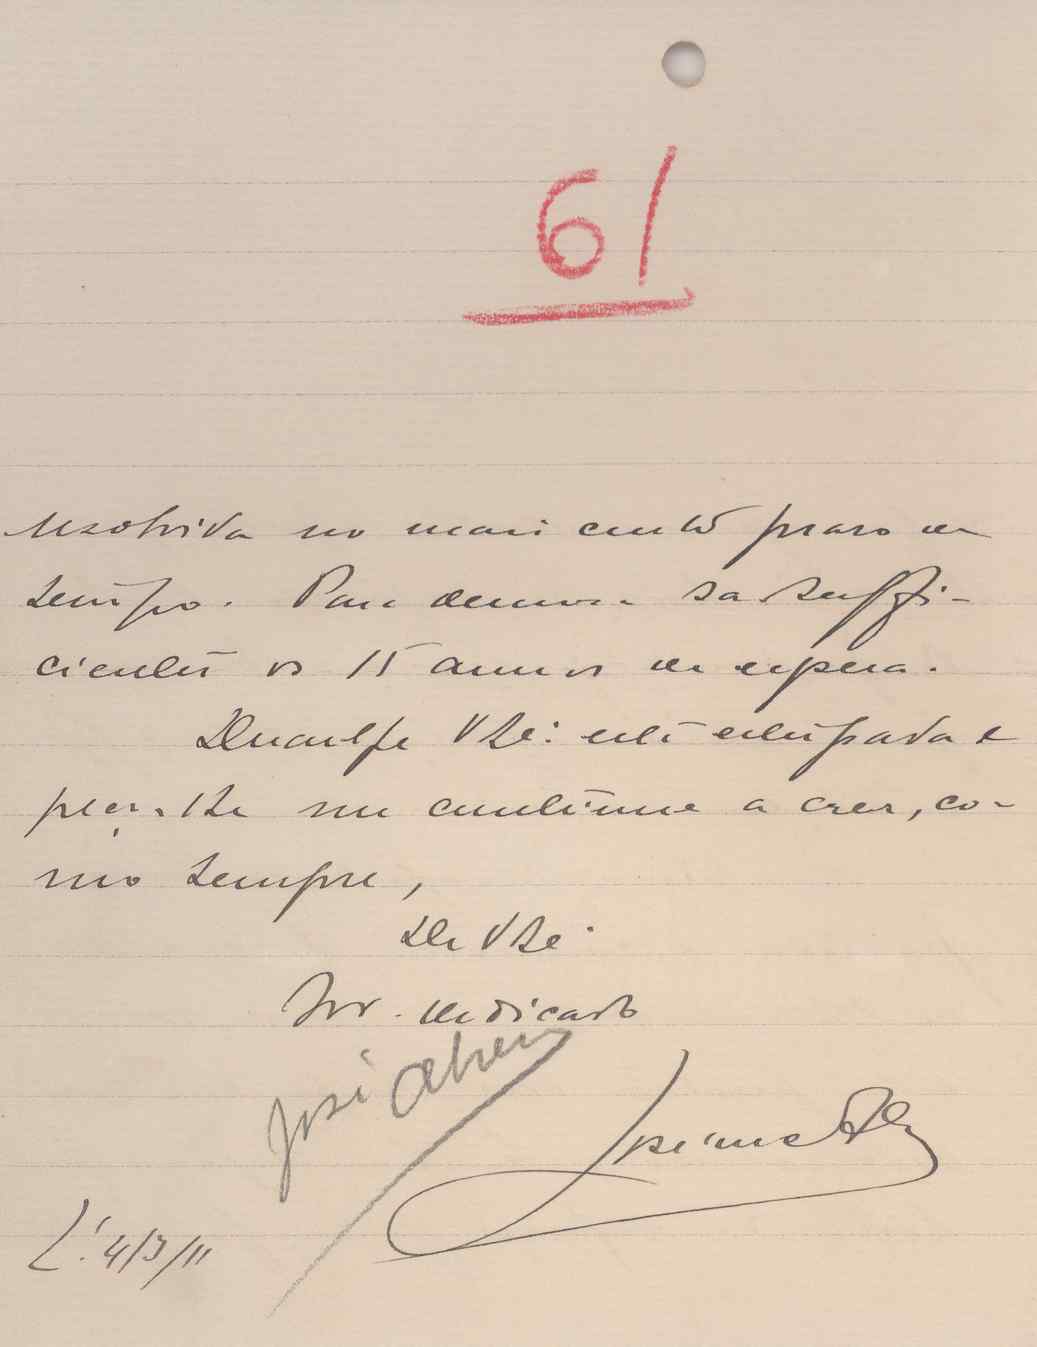 61
resolvida no mais curto praso de
tempo. Para demora já são suffi-
cientes os 15 annos de espera.
Desculpe V Exª: esta estopada e
peço-lhe me continue a crer, co-
mo sempre,
De V Exª
dedicado
José Abreu
L. 4/3/11